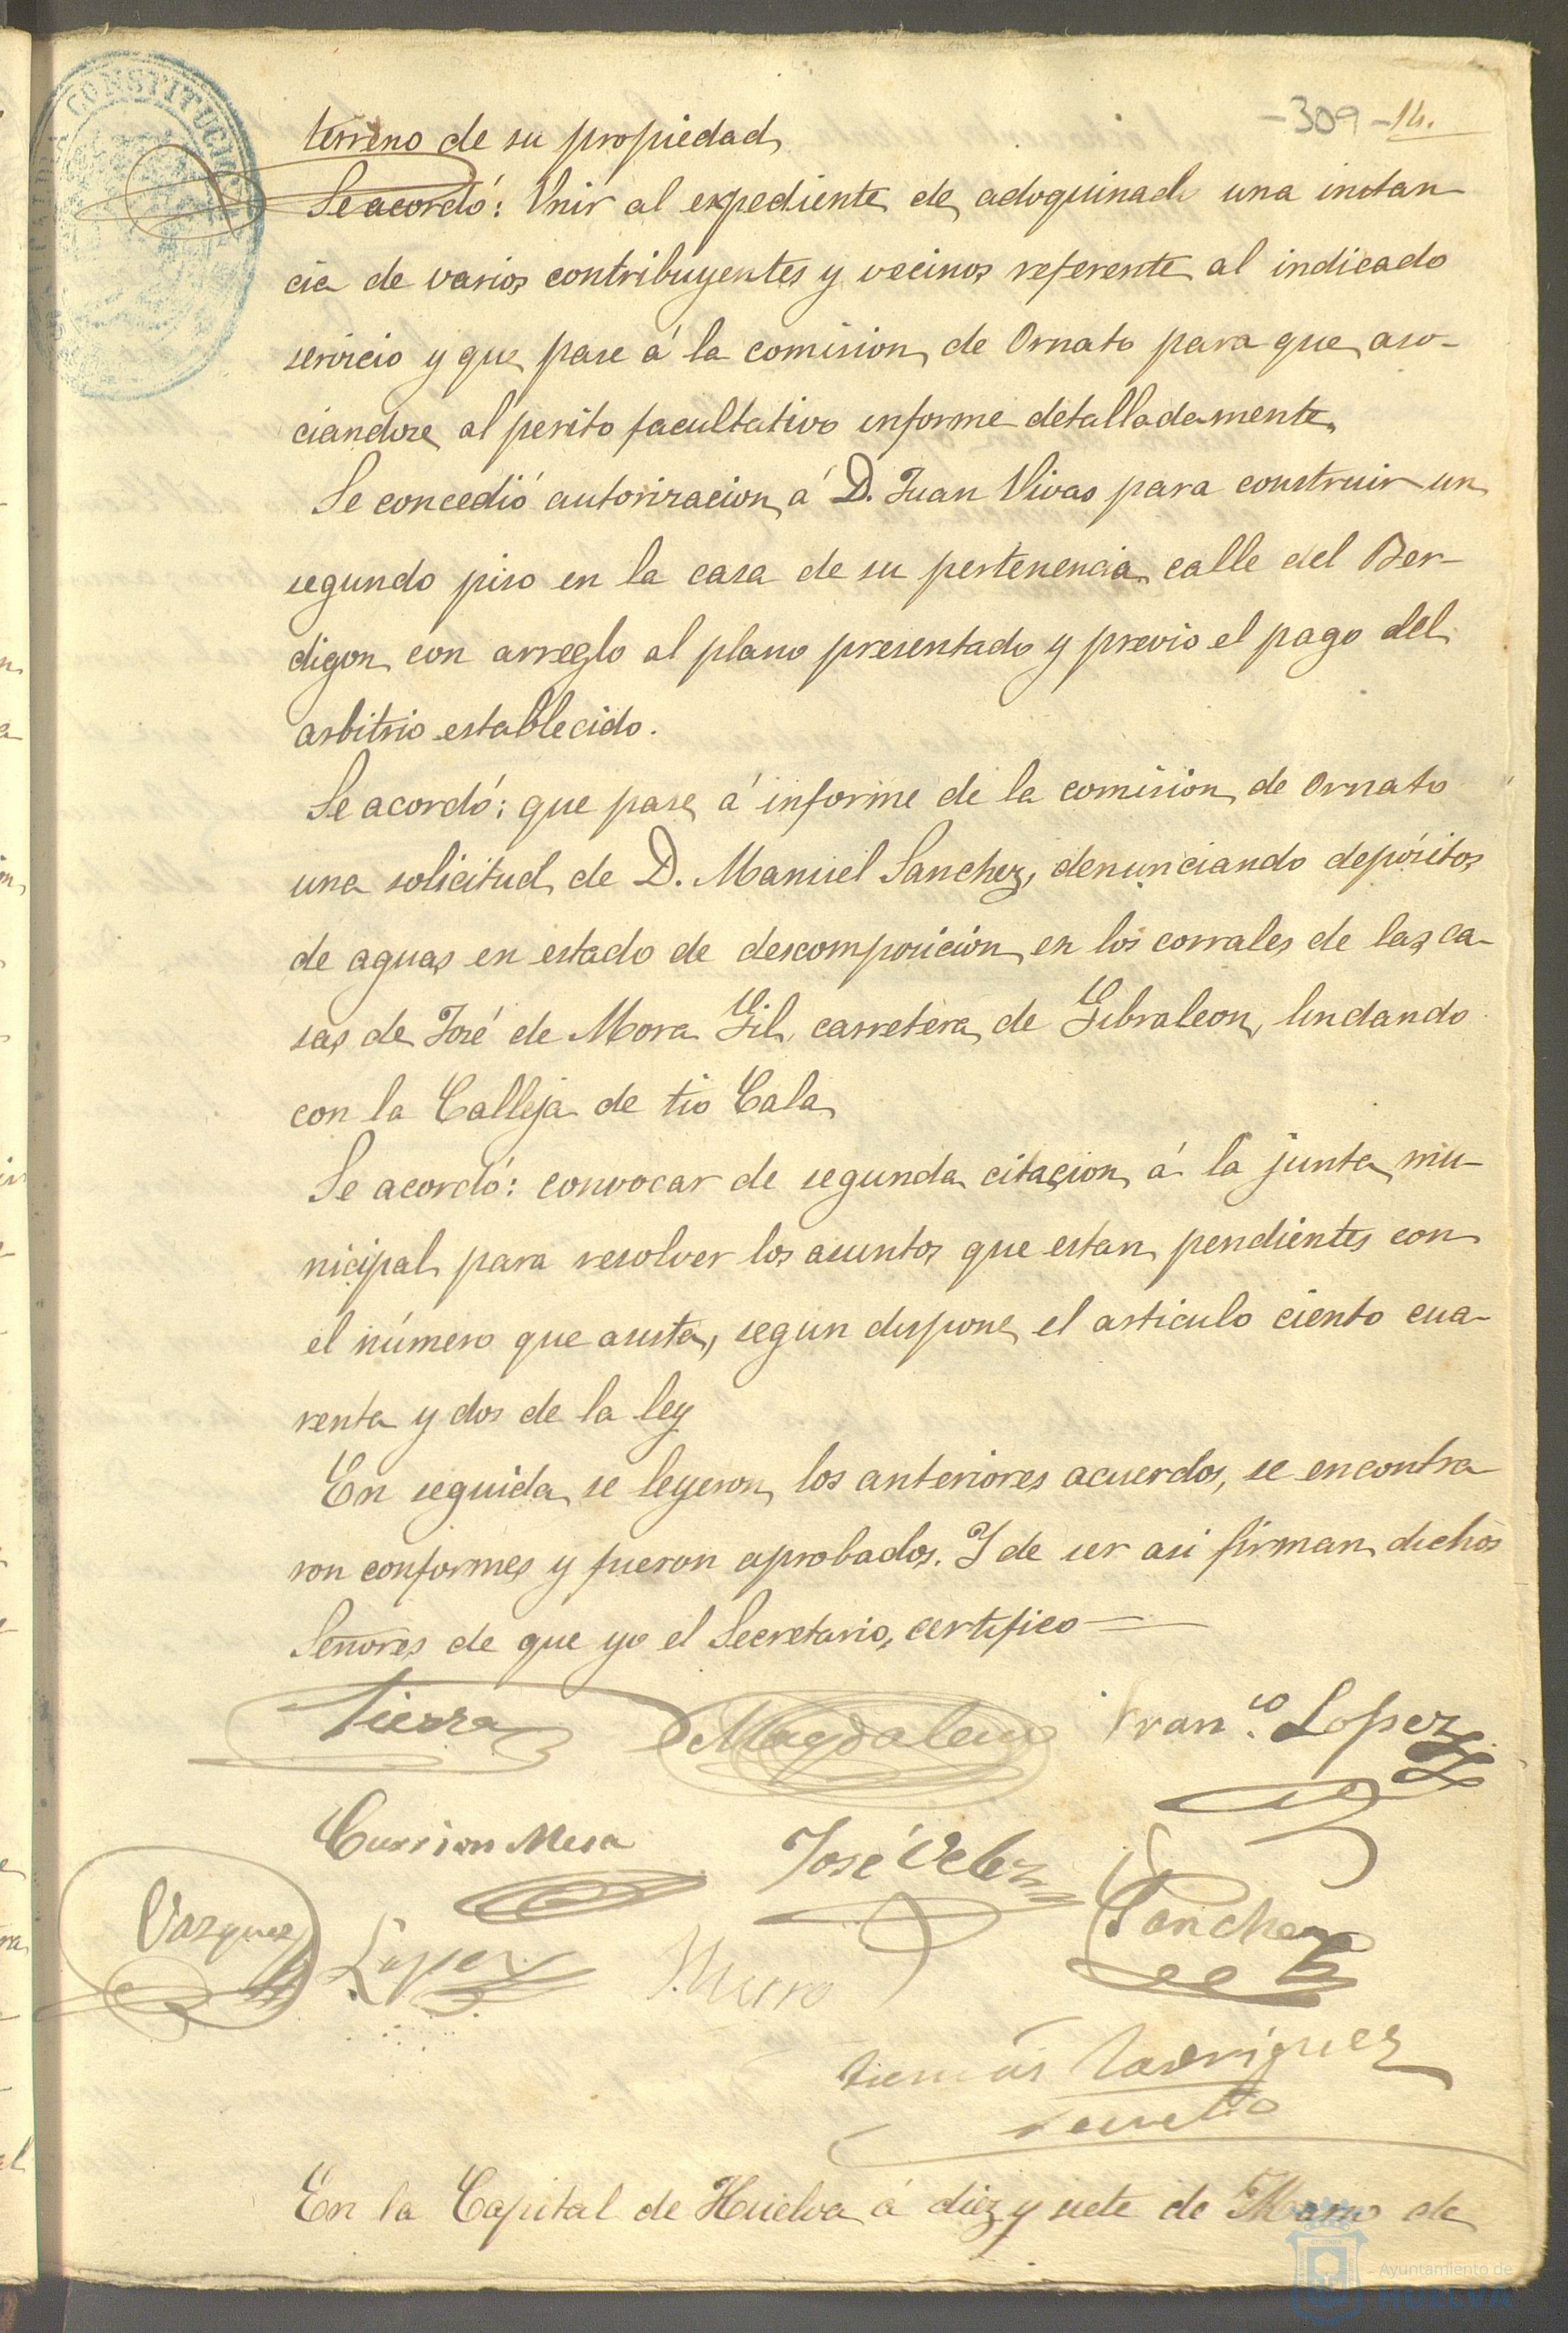 -309-14.
CONSTITUCIO
terreno de su propiedad,
Se acordó: Unir al expediente de adoquinado una instan
cia de varios contribuyentes y vecinos referente al indicado
servicio y que pase á la comision de Ornato para que aso-
ciandose al perito facultativo informe detalladamente.
Se concedió autorizacion á D. Juan Vivas para construir un
segundo piso en la casa de su pertenencia calle del Ber-
digon con arreglo al plano presentado y previo el pago del
arbitrio establecido.
Se acordó: que pase á informe de la comision de Ornato
una solicitud de D. Manuel Sanchez, denunciando depósitos
de aguas en estado de descomposicion en los corrales de las ca-
sas de José de Mora Gil, carretera de Gibraleon, lindando
con la Calleja de tio Cala
Se acordó: convocar de segunda citacion á la junta mu-
nicipal para resolver los asuntos que estan pendientes con
el número que asista, segun dispone el articulo ciento cua-
renta y dos de la ley
En seguida se leyeron los anteriores acuerdos, se encontra
ron conformes y fueron aprobados. Y de ser asi firman dichos
Señores de que yo el Secretario, certifico=
Tierra Magdaleno Fran.co Lopez
Carrion Mesa José Velez Sanchez
Vazquez Lopez
Rodriguez
En la Capital de Huelva á diez y siete de de
Ayuntamiento de
HUELVA